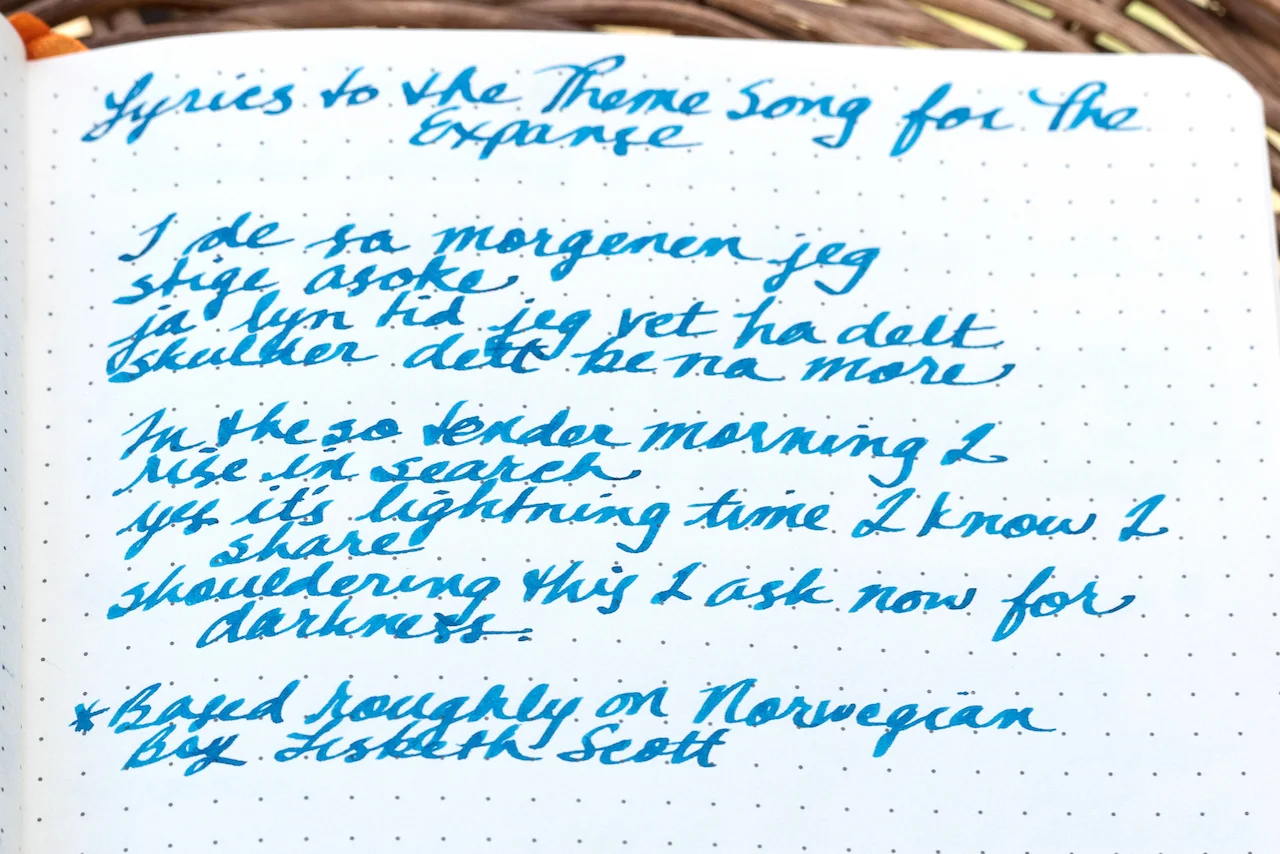 Lyrics to the Theme Song for The
Expanse
I de sa morgenen jeg
stige asoke
ja lyn tid jeg vet ha delt
skulder dett be na more
In the so tender morning I
rise in search
yes it's lightning time I know I
share
shouldering this I ask now for
darkness.
*Based roughly on Norwegian
Boy Lisbeth Scott